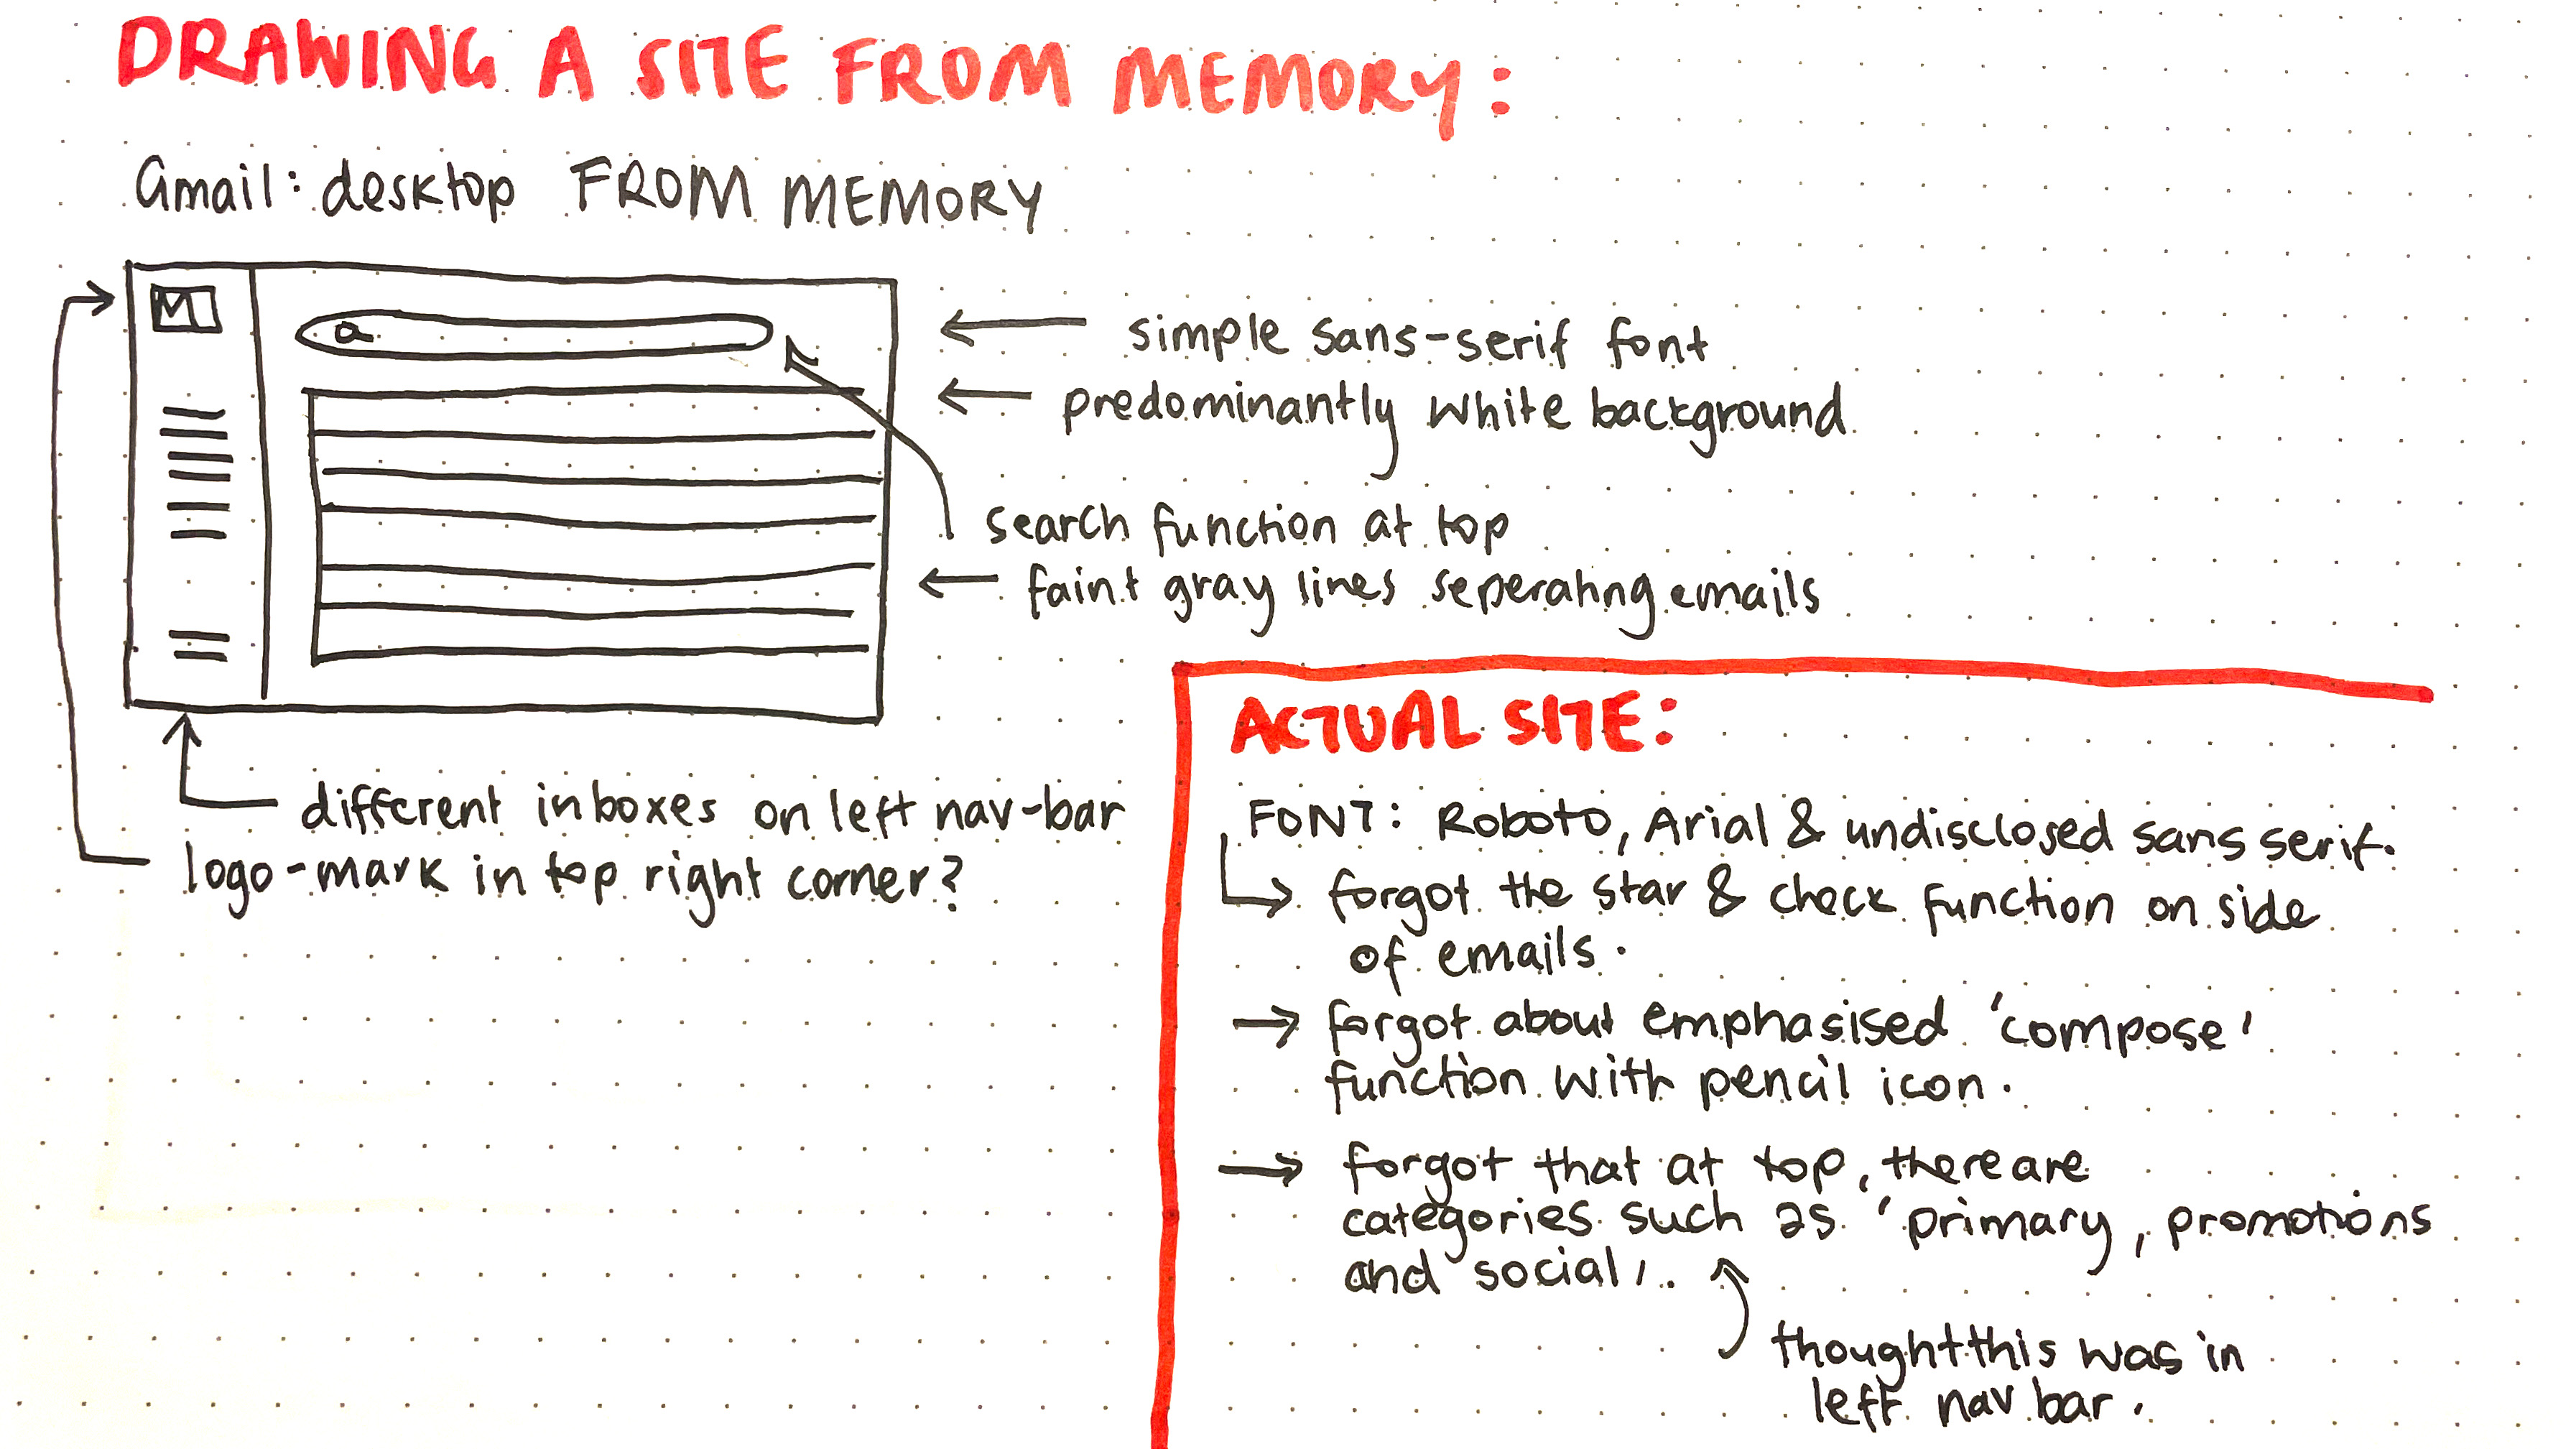 DRAWING A SITE FROM MEMORY:
Gmail: desktop FROM MEMORY
M
simple sans-serif font
predominantly white background
search function at top
faint gray lines seperating emails
different inboxes on left nav-bar
logo-mark in top right corner?
ACTUAL SITE:
FONT: Roboto, Arial & undisclosed sans serif.
forgot the star & check function on side
of emails.
forgot about emphasised 'compose'
function with pencil icon.
forgot that at top, there are
categories such as 'primary, promotions
and social,.
thought this was in
left nav bar.